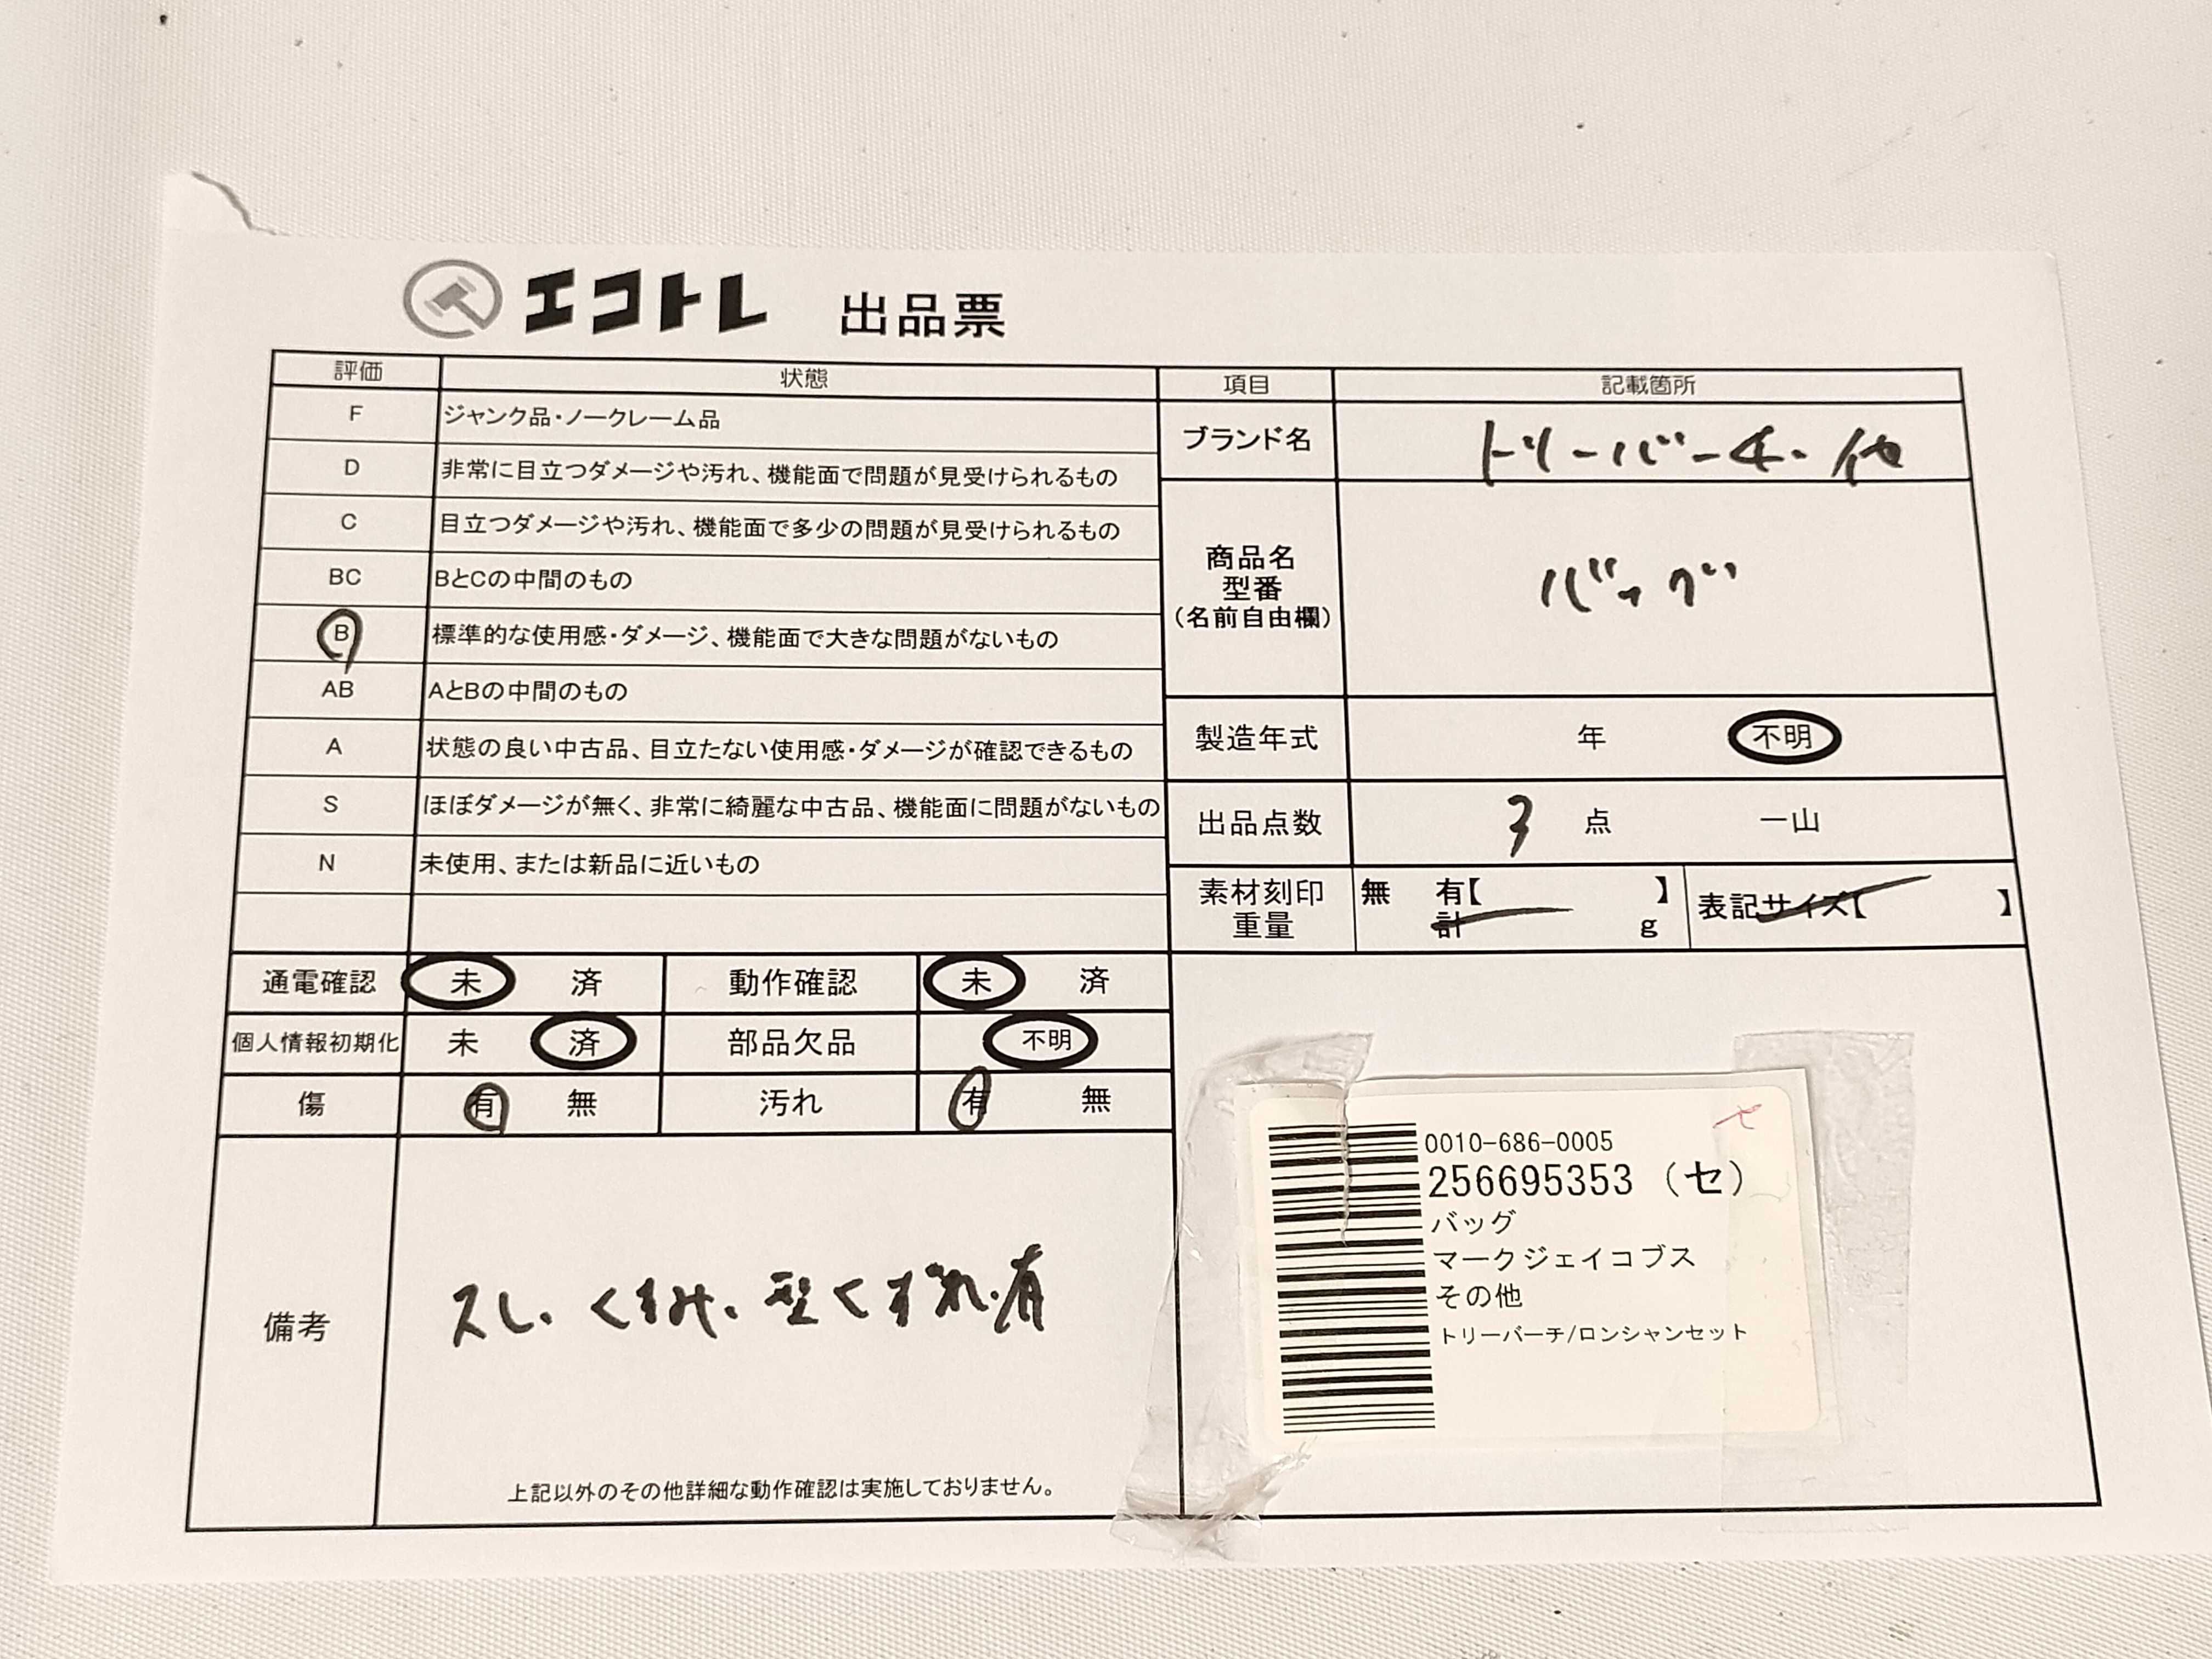 エコトレ 出品票
評価 状態
F ジャンク品・ノークレーム品
D 非常に目立つダメージや汚れ、機能面で問題が見受けられるもの
C 目立つダメージや汚れ、機能面で多少の問題が見受けられるもの
BC BとCの中間のもの
B 標準的な使用感・ダメージ、機能面で大きな問題がないもの
AB AとBの中間のもの
A 状態の良い中古品、目立たない使用感・ダメージが確認できるもの
S ほぼダメージが無く、非常に綺麗な中古品、機能面に問題がないもの
N 未使用、または新品に近いもの
通電確認 未 済 動作確認 未 済
個人情報初期化 未 済 部品欠品 不明
傷 有 無 汚れ 有 無
備考 スレ・くすみ・型くずれ・有
上記以外のその他詳細な動作確認は実施しておりません。
項目 記載箇所
ブランド名 トリーバーチ・他
商品名
型番
(名前自由欄)
バッグ
製造年式 年 不明
出品点数 3 点 一山
素材刻印 無 有【 】 表記サイズ【 】
重量 計 g
0010-686-0005
256695353 (セ)
バッグ
マークジェイコブス
その他
トリーバーチ/ロンシャンセット